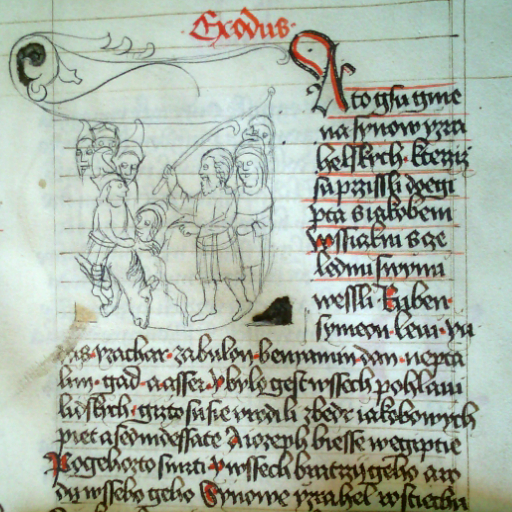 Exodus
A to gsu gme
na synow yzra
helskych. kterziz
su przissli do egi
pta s iakobem
wssickni s cze
ledmi swymi
wessli Ruben.
symeon. leui. yu
das. yzachar. zabulon. beniamin. dan. nepta
lim. gad. a asser. y bylo gest wssech pohlawi
lidskych. gizto su sie vrodili z beder iakobowych
piet a sedmdesate A iozeph biesse w egiptie
Po gehozto smrti y wssech bratrzy geho a ro
du wsseho geho Synowe yzrahel